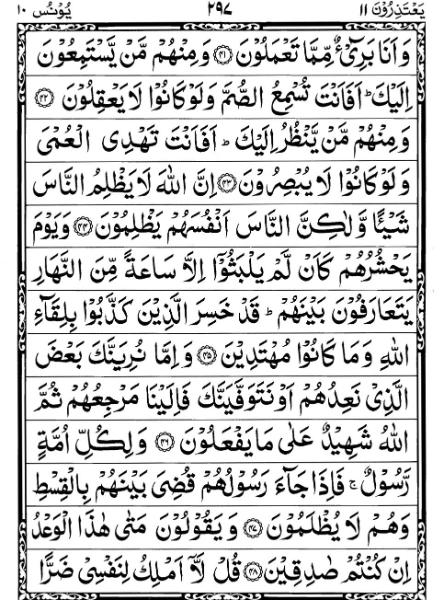 يَعْتَذِرُوْنَ ١١ ٢٩٧ يُوْنُسَ ١٠
وَاَنَا بَرِیْٓءٌ مِّمَّا تَعْمَلُوْنَ ۝٤١ وَمِنْهُمْ مَّنْ يَّسْتَمِعُوْنَ
اِلَيْكَ ؕ اَفَاَنْتَ تُسْمِعُ الصُّمَّ وَلَوْ كَانُوْا لَا يَعْقِلُوْنَ ۝٤٢
وَمِنْهُمْ مَّنْ يَّنْظُرُ اِلَيْكَ ؕ اَفَاَنْتَ تَهْدِى الْعُمْىَ
وَلَوْ كَانُوْا لَا يُبْصِرُوْنَ ۝٤٣ اِنَّ اللّٰهَ لَا يَظْلِمُ النَّاسَ
شَيْئًا وَّلٰكِنَّ النَّاسَ اَنْفُسَهُمْ يَظْلِمُوْنَ ۝٤٤ وَيَوْمَ
يَحْشُرُهُمْ كَاَنْ لَّمْ يَلْبَثُوْۤا اِلَّا سَاعَةً مِّنَ النَّهَارِ
يَتَعَارَفُوْنَ بَيْنَهُمْ ؕ قَدْ خَسِرَ الَّذِيْنَ كَذَّبُوْا بِلِقَآءِ
اللّٰهِ وَمَا كَانُوْا مُهْتَدِيْنَ ۝٤٥ وَاِمَّا نُرِيَنَّكَ بَعْضَ
الَّذِىْ نَعِدُهُمْ اَوْ نَتَوَفَّيَنَّكَ فَاِلَيْنَا مَرْجِعُهُمْ ثُمَّ
اللّٰهُ شَهِيْدٌ عَلٰى مَا يَفْعَلُوْنَ ۝٤٦ وَلِكُلِّ اُمَّةٍ
رَّسُوْلٌ ۚ فَاِذَا جَآءَ رَسُوْلُهُمْ قُضِىَ بَيْنَهُمْ بِالْقِسْطِ
وَهُمْ لَا يُظْلَمُوْنَ ۝٤٧ وَيَقُوْلُوْنَ مَتٰى هٰذَا الْوَعْدُ
اِنْ كُنْتُمْ صٰدِقِيْنَ ۝٤٨ قُلْ لَّاۤ اَمْلِكُ لِنَفْسِىْ ضَرًّا